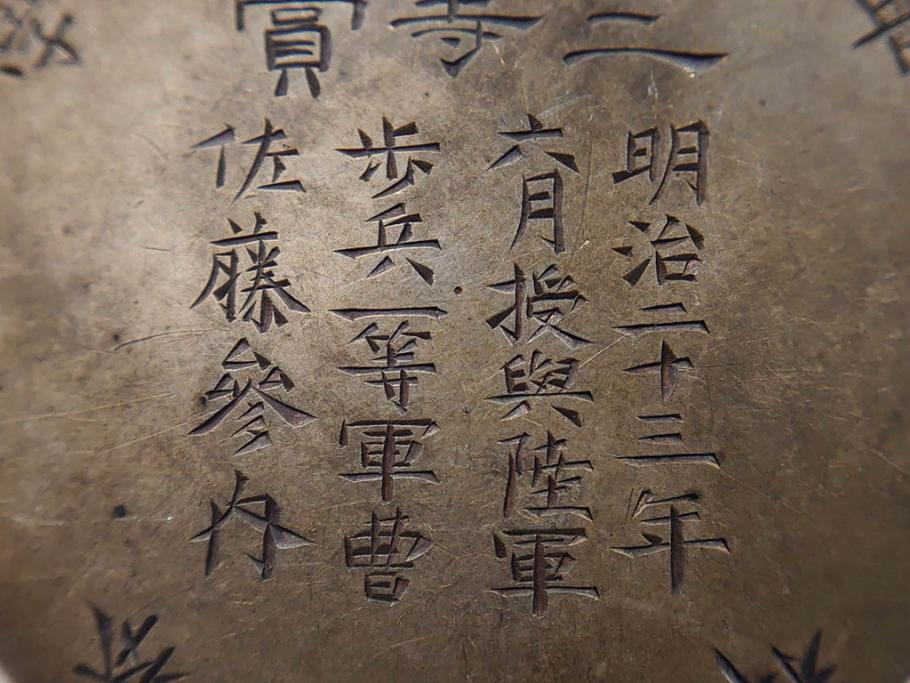 二等賞
明治二十三年
六月授與陸軍
歩兵一等軍曹
佐藤參内